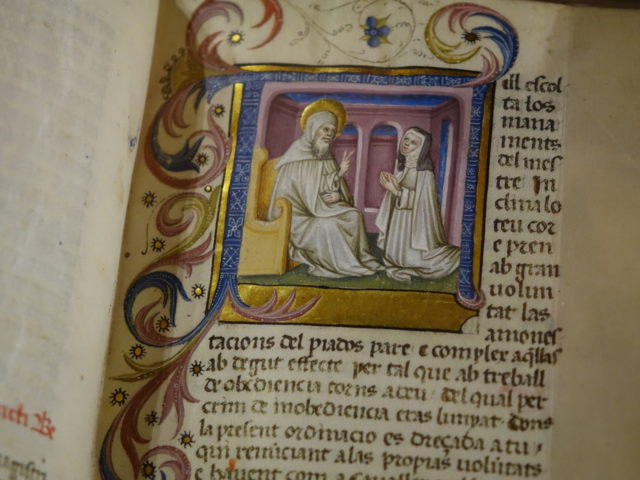 ill escol
ta los
mana
ments
del mes
tre In
clina lo
teu cor
e pren
ab gran
uolun
tat las
amones
tacions del piados pare e complex aq̃llas
ab degut effecte per tal que ab treball
de obediencia torns a deu del qual per
crim de inobediencia eras lunyat dons
la present ordinacio es dreçada a tu
qui renunciant a las propias uolũtats
e